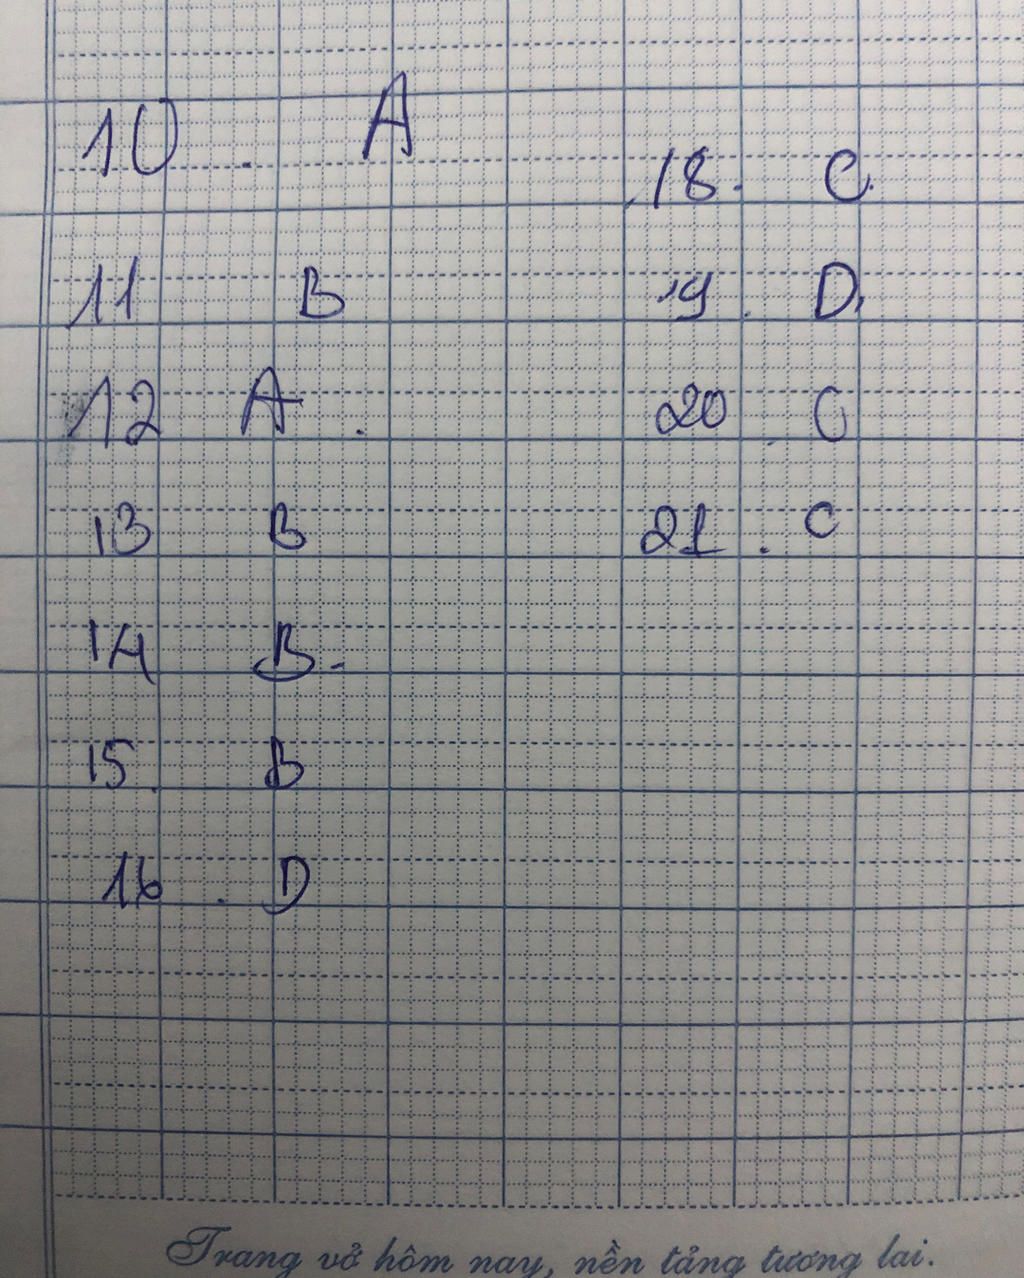 10. A
11 B
12 A.
13 B
14 B.
15. B
16. D
18. C.
19. D,
20. C
21. C
Trang vở hôm nay, nền tảng tương lai.